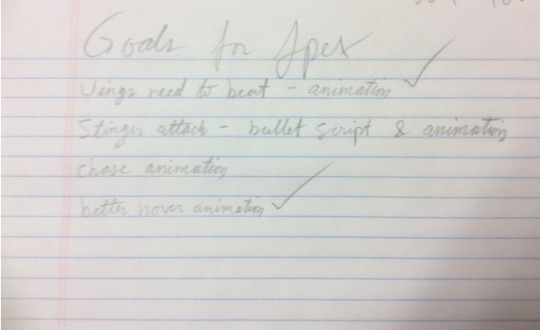 Goals for Apex
Wings need to beat - animation ✓
Stinger attack - bullet script & animation
chase animation
better hover animation ✓